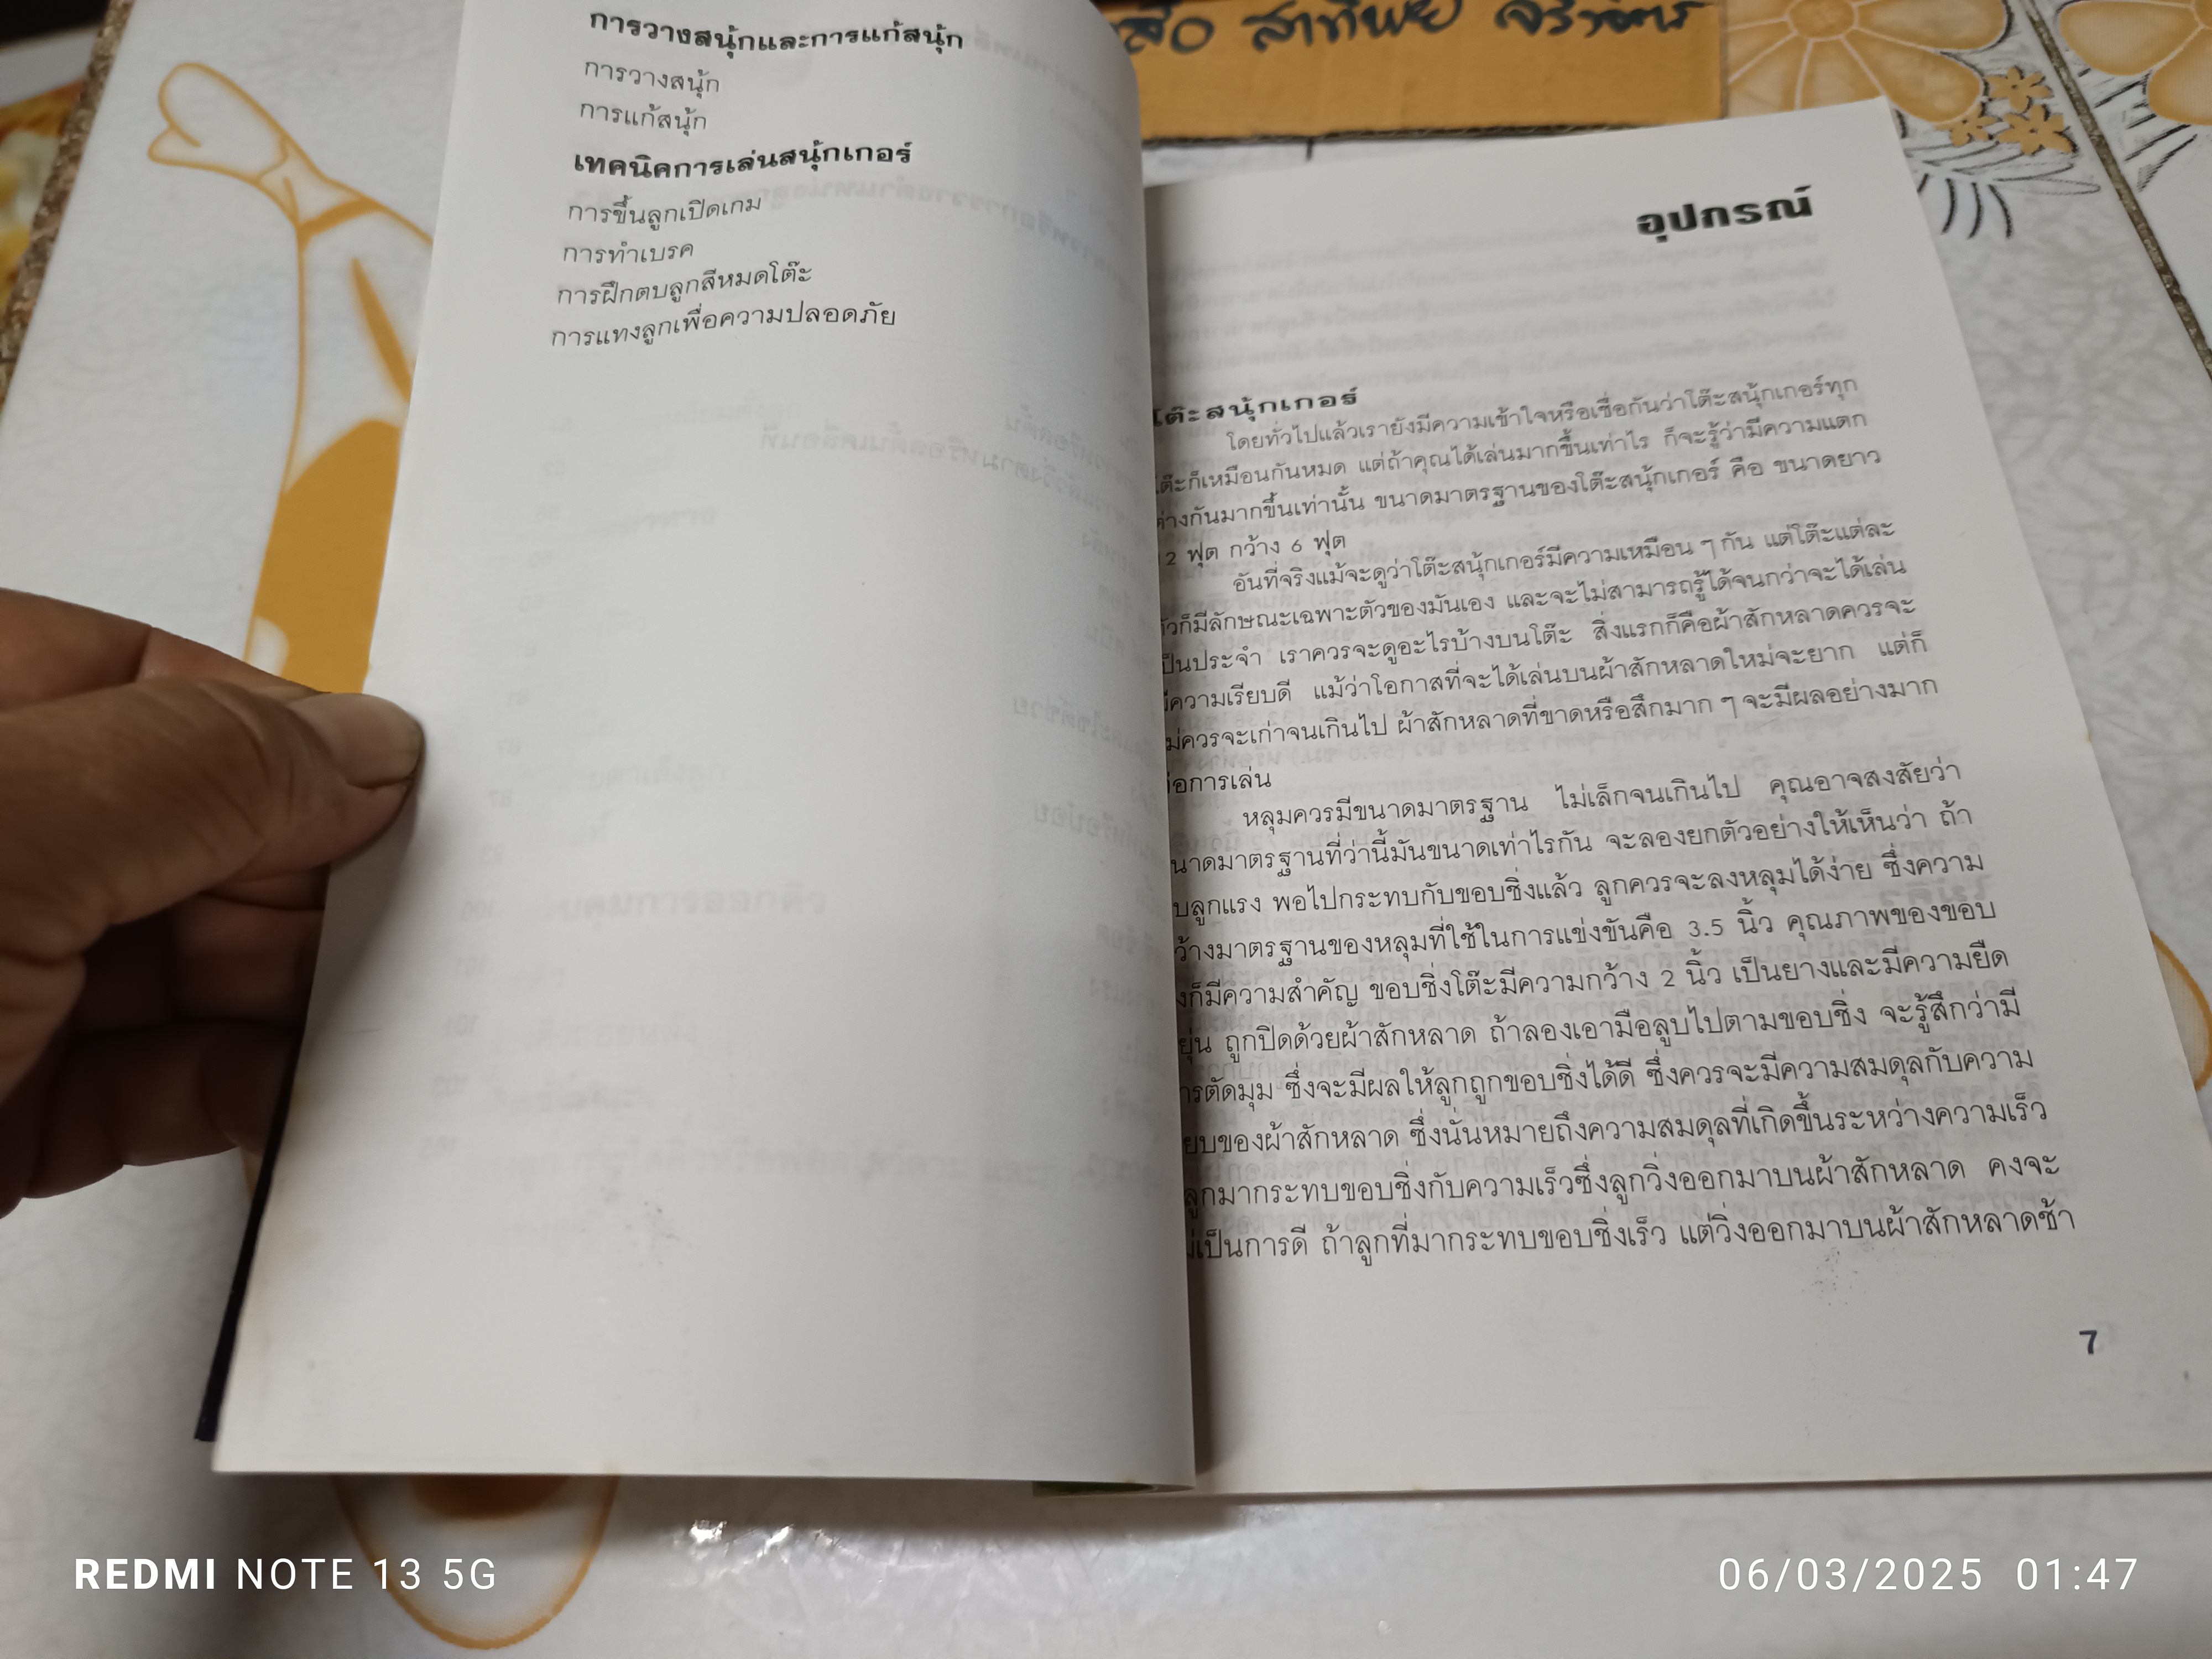 สือ สาทิพย์
การวางสนุ้กและการแก้สนุ้ก
การวางสนุ้ก
การแก้สนุ้ก
เทคนิคการเล่นสนุ้กเกอร์
การขึ้นลูกเปิดเกม
การทำเบรค
การฝึกตบลูกสีหมดโต๊ะ
การแทงลูกเพื่อความปลอดภัย
อุปกรณ์
โต๊ะสนุ้กเกอร์
โดยทั่วไปแล้วเรายังมีความเข้าใจหรือเชื่อกันว่าโต๊ะสนุ้กเกอร์ทุก
โต๊ะก็เหมือนกันหมด แต่ถ้าคุณได้เล่นมากขึ้นเท่าไร ก็จะรู้ว่ามีความแตก
ต่างกันมากขึ้นเท่านั้น ขนาดมาตรฐานของโต๊ะสนุ้กเกอร์ คือ ขนาดยาว
12 ฟุต กว้าง 6 ฟุต
อันที่จริงแม้จะดูว่าโต๊ะสนุ้กเกอร์มีความเหมือน ๆ กัน แต่โต๊ะแต่ละ
ตัวก็มีลักษณะเฉพาะตัวของมันเอง และจะไม่สามารถรู้ได้จนกว่าจะได้เล่น
เป็นประจำ เราควรจะดูอะไรบ้างบนโต๊ะ สิ่งแรกก็คือผ้าสักหลาดควรจะ
มีความเรียบดี แม้ว่าโอกาสที่จะได้เล่นบนผ้าสักหลาดใหม่จะยาก แต่ก็
ไม่ควรจะเก่าจนเกินไป ผ้าสักหลาดที่ขาดหรือสึกมาก ๆ จะมีผลอย่างมาก
ต่อการเล่น
หลุมควรมีขนาดมาตรฐาน ไม่เล็กจนเกินไป คุณอาจสงสัยว่า
ขนาดมาตรฐานที่ว่านี้มันขนาดเท่าไรกัน จะลองยกตัวอย่างให้เห็นว่า ถ้า
บลูกแรง พอไปกระทบกับขอบชิ่งแล้ว ลูกควรจะลงหลุมได้ง่าย ซึ่งความ
กว้างมาตรฐานของหลุมที่ใช้ในการแข่งขันคือ 3.5 นิ้ว คุณภาพของขอบ
งก็มีความสำคัญ ขอบชิ่งโต๊ะมีความกว้าง 2 นิ้ว เป็นยางและมีความยืด
ยุ่น ถูกปิดด้วยผ้าสักหลาด ถ้าลองเอามือลูบไปตามขอบชิ่ง จะรู้สึกว่ามี
ารตัดมุม ซึ่งจะมีผลให้ลูกถูกขอบชิ่งได้ดี ซึ่งควรจะมีความสมดุลกับความ
ยบของผ้าสักหลาด ซึ่งนั่นหมายถึงความสมดุลที่เกิดขึ้นระหว่างความเร็ว
ลูกมากระทบขอบชิ่งกับความเร็วซึ่งลูกวิ่งออกมาบนผ้าสักหลาด คงจะ
ม่เป็นการดี ถ้าลูกที่มากระทบขอบชิ่งเร็ว แต่วิ่งออกมาบนผ้าสักหลาดช้า
7
REDMI NOTE 13 5G
06/03/2025 01:47